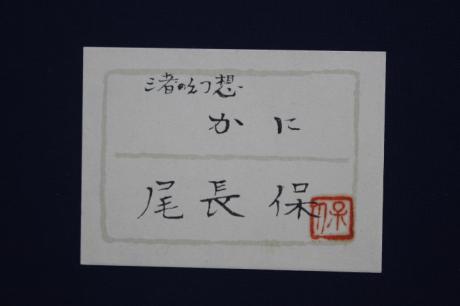 渚の幻想
かに
尾長保
保